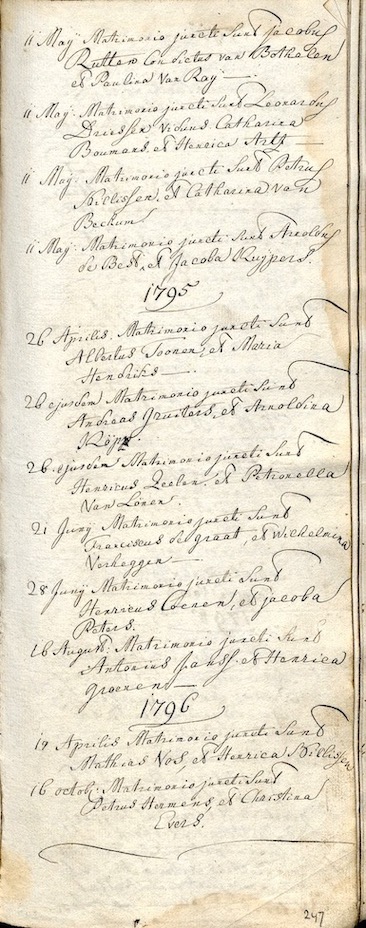 11 Maÿ Matrimonio juncti Sunt Jacobus
Rutten Condictus van Bothelen
et Paulina Van Raÿ
11 Maÿ: Matrimonio juncti Sunt Leonardus
Driessen Viduus Catharina
Boumans, et Henrica Arts
11 Maÿ: Matrimonio juncti Sunt Petrus
Hillissen, et Catharina Van
Beckum
11 Maÿ: Matrimonio juncti Sunt Arnoldus
de Best, et Jacoba Kuÿpers.
1795
26 Aprilis, Matrimonio juncti Sunt
Albertus Toonen, et Maria
Hendriks
26 ejusdem Matrimonio juncti Sunt
Andreas Grutters, et Arnoldina
26 ejusdem Matrimonio juncti Sunt
Henricus Leelen, et Petronella
Van Lönen.
21 Junÿ Matrimonio juncti Sunt
Franciscus de graat, et Wilhelmina
Verheggen
28 Junÿ Matrimonio juncti Sunt
Henricus Coenen, et jacoba
Peters.
16 August: Matrimonio juncti Sunt
Antonius Janss. et Henrica
groenen
1796
19 Aprilis Matrimonio juncti Sunt
Mathias Vos, et Henrica Hillissen
16 octob: Matrimonio juncti Sunt
Petrus Hermens, et Christina
Evers.
247